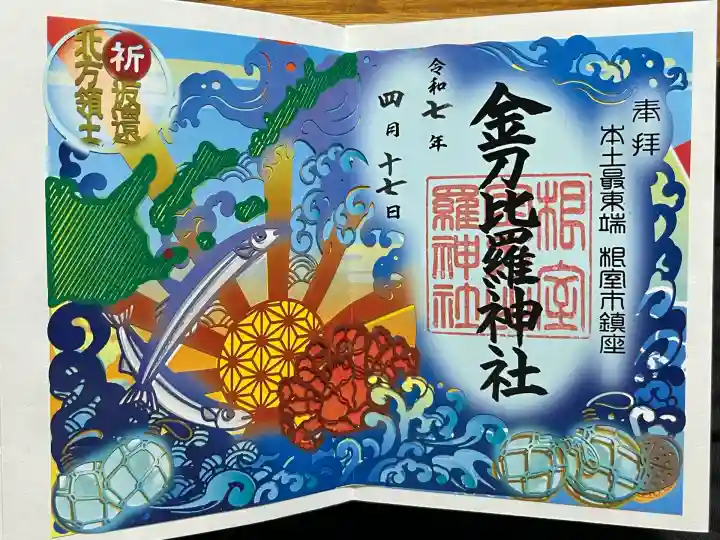 奉拝
本土最東端 根室市鎮座
金刀比羅神社
根室金刀比羅神社
令和七年
四月十七日
祈
北方領土
返還